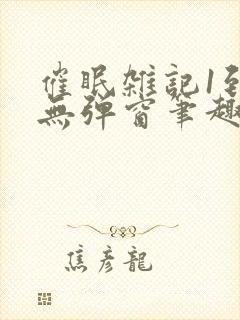 催眠雑記1到
無彈窗筆趣
焦彥龍